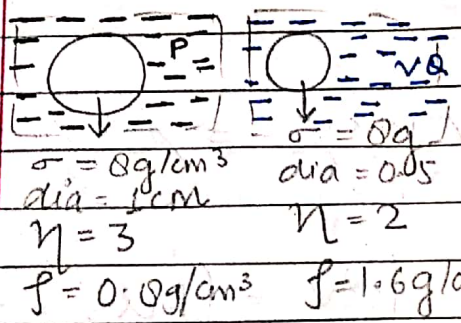 P
Q
σ = 8g/cm³
dia = 1cm
η = 3
ρ = 0.8g/cm³
σ = 8g
dia = 0.5
η = 2
ρ = 1.6g/c